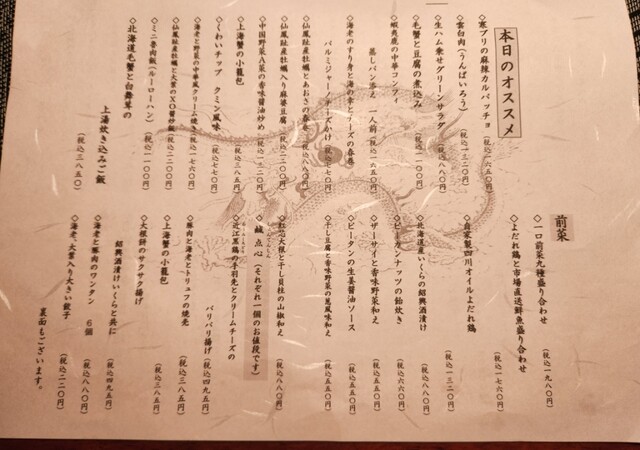 本日のオススメ
◇寒ブリの麻辣カルパッチョ（税込一六五〇円）
◇雲白肉（うんぱいろう）（税込一三二〇円）
◇生ハム乗せグリーンサラダ（税込八八〇円）
◇毛蟹と豆腐の煮込み（税込一一〇〇円）
◇蝦夷鹿の中華コンフィ
蒸しパン添え 一人前（税込一六五〇円）
◇海老のすり身と海の幸とチーズの春巻
パルミジャーノチーズかけ（税込七七〇円）
◇仙鳳趾産牡蠣とあおさの春巻（税込八八〇円）
◇仙鳳趾産牡蠣入り麻婆豆腐（税込二二〇〇円）
◇中国野菜A菜の香味醤油炒め（税込一三二〇円）
◇上海蟹の小籠包（税込三八五円）
◇くわいチップ クミン風味（税込七七〇円）
◇海老と野菜の中華風クリーム焼き（税込一七六〇円）
◇仙鳳趾産牡蠣と大葉のXO醤炒飯（税込二二〇〇円）
◇ミニ魯肉飯（ルーローハン）（税込一一〇〇円）
◇北海道毛蟹と白舞茸の
上湯炊き込みご飯（税込三八五〇）
前菜
◇一口前菜九種盛り合わせ（税込一九八〇円）
◇よだれ鶏と市場直送鮮魚盛り合わせ（税込一七六〇円）
◇自家製四川オイルよだれ鶏（税込一三二〇円）
◇北海道産いくらの紹興酒漬け（税込八八〇円）
◇ピーカンナッツの飴炊き（税込六六〇円）
◇ザーサイと香味野菜和え（税込五五〇円）
◇ピータンの生姜醤油ソース（税込五五〇円）
◇干し豆腐と香味野菜の葱風味和え（税込五五〇円）
◇紅芯大根と干し貝柱の山椒和え（税込八八〇円）
◇鹹点心（それぞれ一個のお値段です）
◇近江黒鶏の手羽先とクリームチーズの
パリパリ揚げ（税込四九五円）
◇豚肉と海老とトリュフの焼売（税込三八五円）
◇上海蟹の小籠包（税込三八五円）
◇大根餅のサクサク揚げ
紹興酒漬けいくらと共に（税込四九五円）
◇海老と豚肉のワンタン 6個（税込八八〇円）
◇海老、大葉入り大きい餃子（税込二二〇円）
裏面もございます。